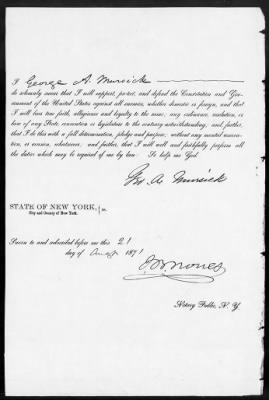 I George A. Mursick
do solemnly swear that I will support, protect, and defend the Constitution and Gov-
ernment of the United States against all enemies, whether domestic or foreign, and that
I will bear true faith, allegiance and loyalty to the same, any ordinance, resolution, or
law of any State, convention or legislature to the contrary notwithstanding; and, further,
that I do this with a full determination, pledge and purpose, without any mental reserva-
tion, or evasion, whatsoever, and further, that I will well and faithfully perform all
the duties which may be required of me by law: So help me God.
Geo. A. Mursick
STATE OF NEW YORK, } ss.
City and County of New York.
Sworn to and subscribed before me this 21
day of Augt 1871
Nones
Notary Public, N. Y.